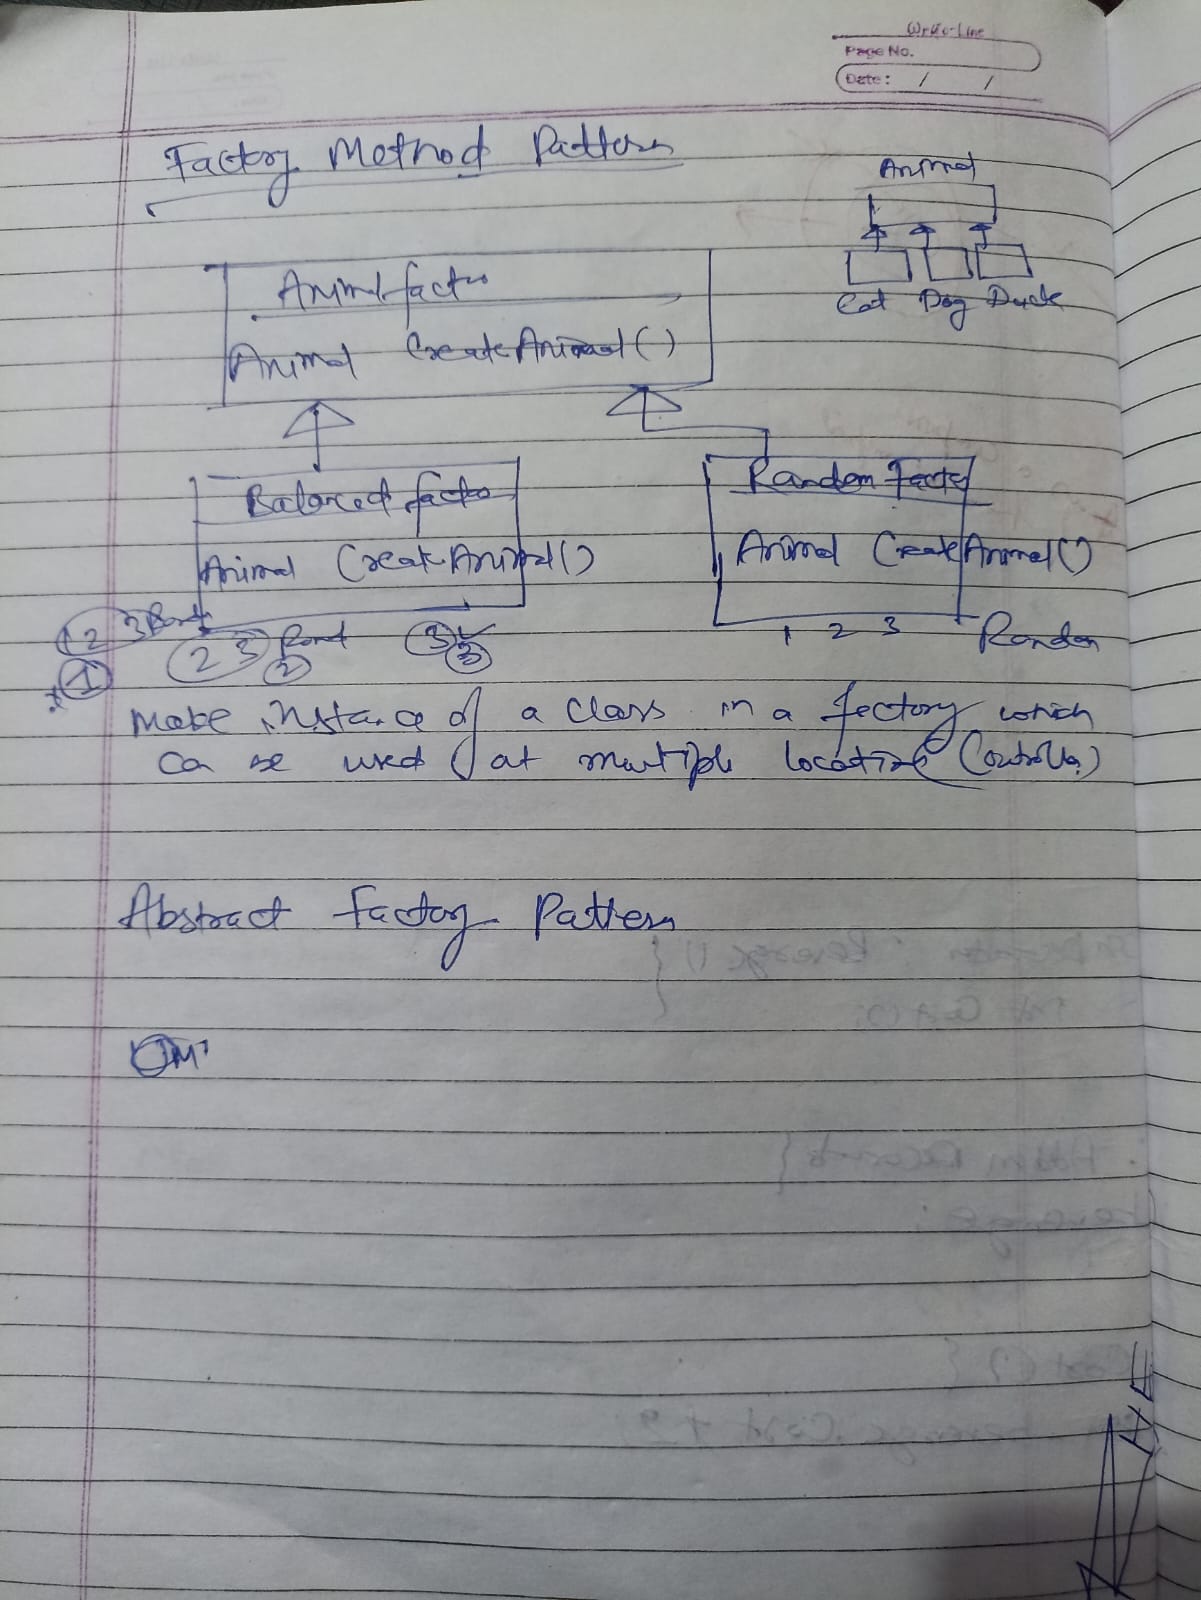 Write-Line
Page No.
Date: / /
Factory Method Pattern
Animal
Cat Dog Duck
Animal factor
Animal CreateAnimal()
Balanced factor
Animal CreateAnimal()
Random Factory
Animal CreateAnimal()
1 2 3 Rand
1
2 3 Rand
2
3
3
1 2 3 Random
Make instance of a class in a factory which
can be used at multiple location
Abstract Factory Pattern